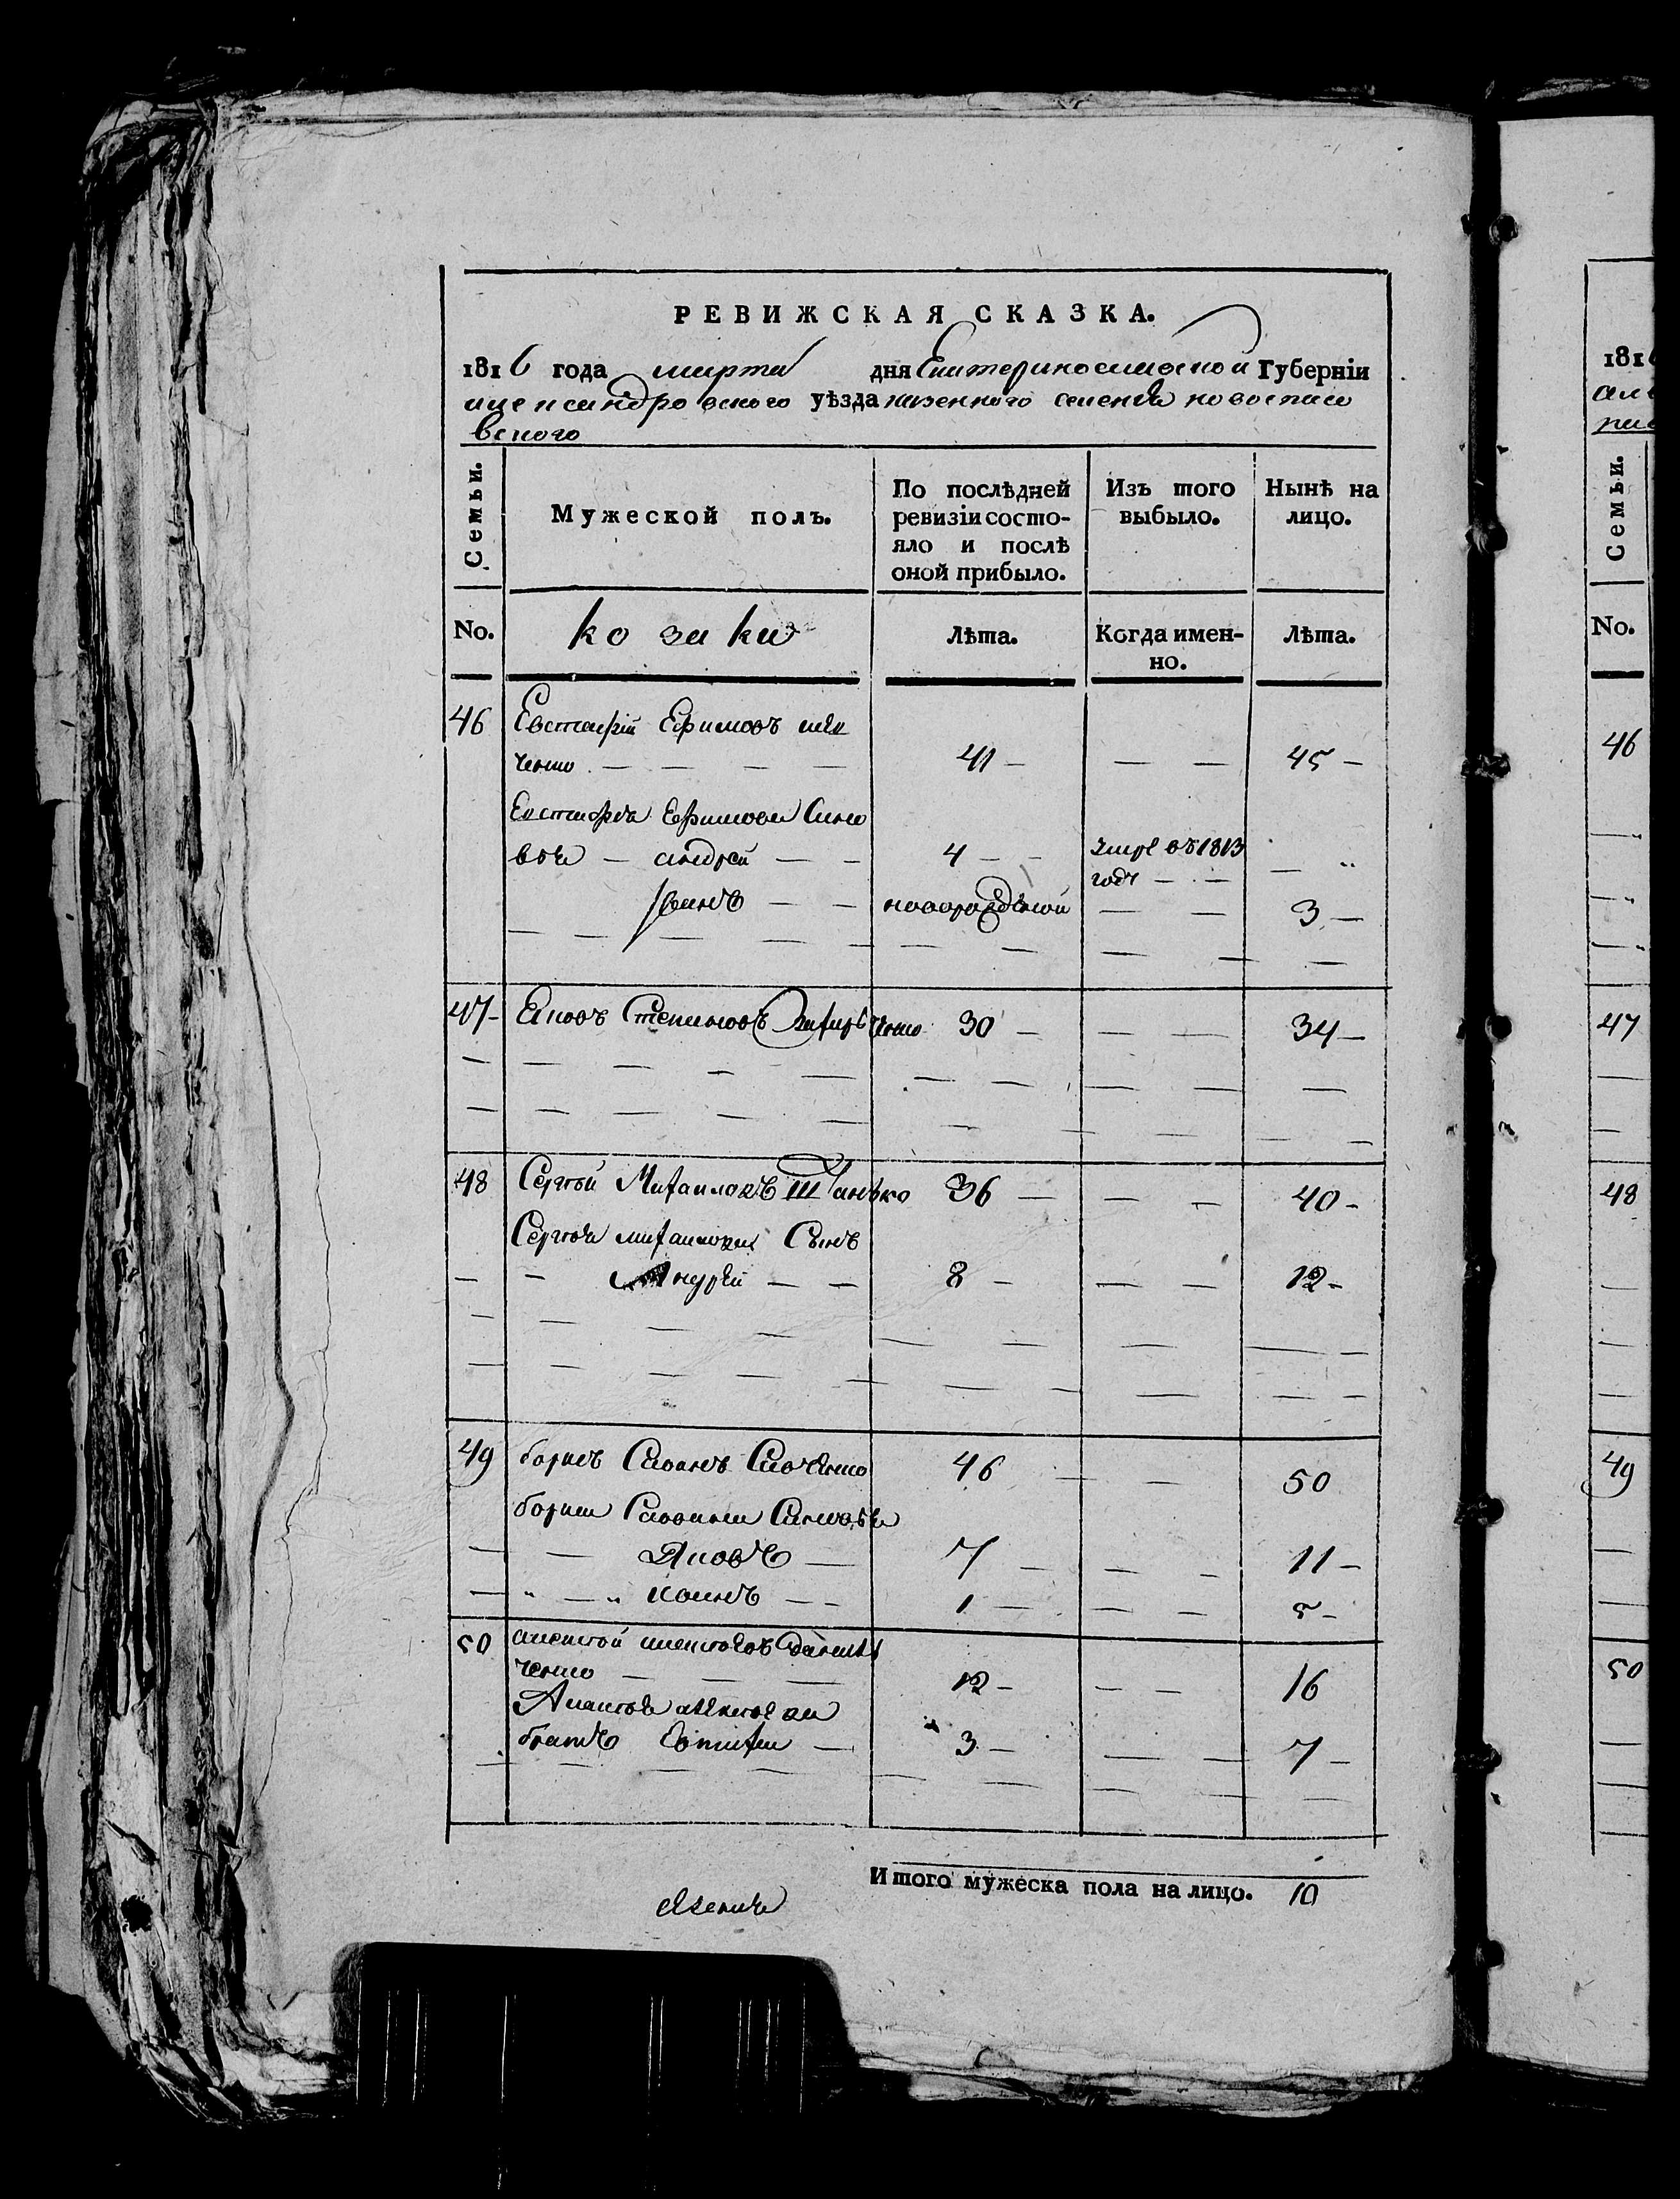 РЕВИЖСКАЯ СКАЗКА.
1816 года марта дня Екатеринославской Губерніи
александровского уѣзда казенного селения новоспасо
вского
Семьи.
Мужеской полъ.
По послѣдней ревизіи состояло и послѣ оной прибыло.
Изъ того выбыло.
Нынѣ на лицо.
No.
козаки
Лѣта.
Когда именно.
Лѣта.
46 Евстафій Ефимовъ
ченко 41 45
Евстафія Ефимова Сыно
вья андрей 4 умре въ 1813 году
Иванъ новорожденой 3
47 Яковъ Степановъ Захарченко 30 34
48 Сергѣй Михаиловъ 36 40
Сергѣя михаилова Сынъ
8 12
49 борисъ Савинъ Савченко 46 50
бориса Савина Сыновья
Яковъ 7 11
иванъ 1 5
50 алексѣй алексѣевъ
ченко 12 16
Алексѣя алексѣева
братъ 3 7
Итого мужеска пола на лицо. 10
1816
No.
Семьи.
46
47
48
49
50